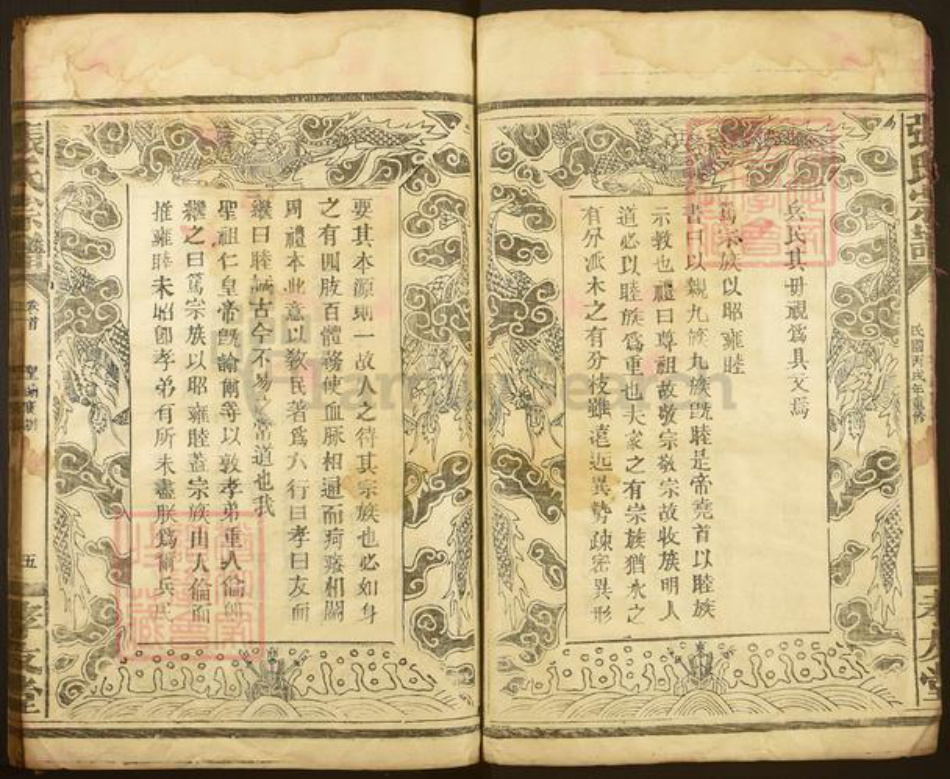 張氏宗譜
民國丙戌年重修
孝友堂
兵民其毋視為具文焉
篤宗族以昭雍睦
書曰以親九族九族旣睦是帝堯首以睦族
示教也禮曰尊祖故敬宗敬宗故收族明人
道必以睦族為重也夫家之有宗族猶水之
有分派木之有分枝雖遠近異勢疎密異形
要其本源則一故人之待其宗族也必如身
之有四肢百體務使血脉相通而疴癢相關
周禮本此意以教民著為六行曰孝曰友而
繼曰睦誠古今不易之常道也我
聖祖仁皇帝旣諭爾等以敦孝弟重人倫卽
繼之曰篤宗族以昭雍睦蓋宗族由人倫而
推雍睦未昭卽孝弟有所未盡朕為爾兵民
張氏宗譜
卷首
聖諭廣訓
五
孝友堂